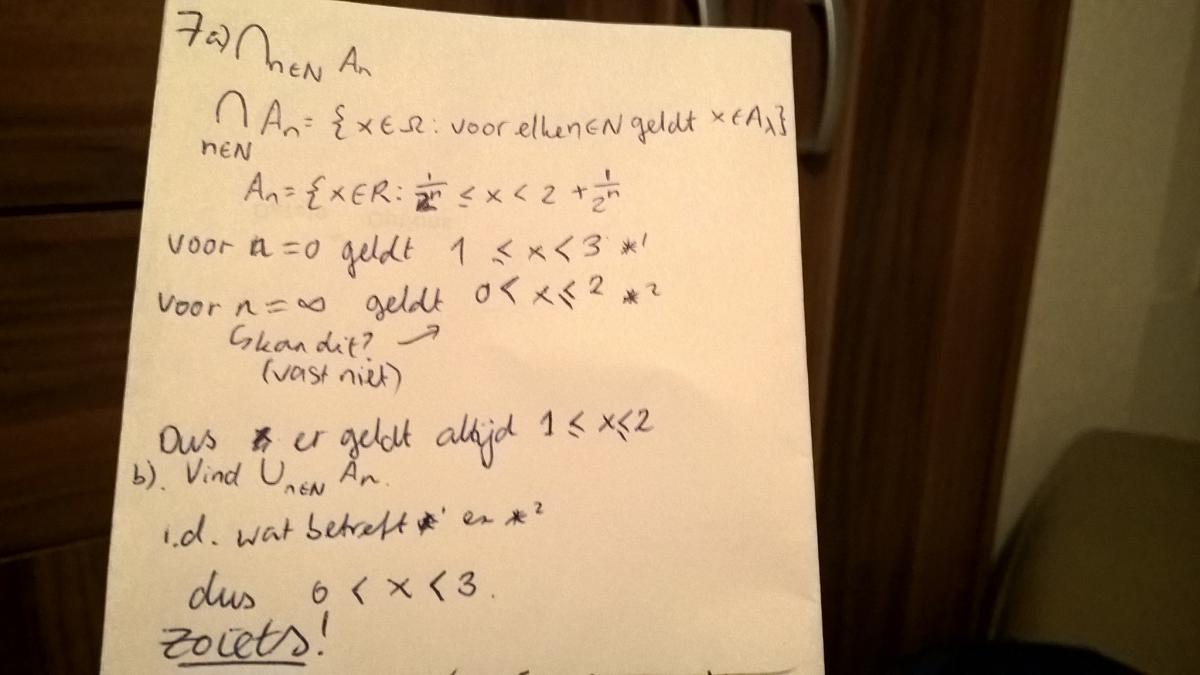 7a) ⋂n∈N An
⋂ An = { x ∈ Ω : voor elke n∈N geldt x ∈ Aλ}
n∈N
An = { x ∈ R : 1/2^n ≤ x < 2 + 1/2^n
voor n = 0 geldt 1 ≤ x < 3 *1
voor n = ∞ geldt 0 < x ≤ 2 *2
↳ kan dit? →
(vast niet)
Dus er geldt altijd 1 ≤ x ≤ 2
b). Vind ∪n∈N An.
i.d. wat betreft *1 en *2
dus 0 < x < 3.
zoiets!